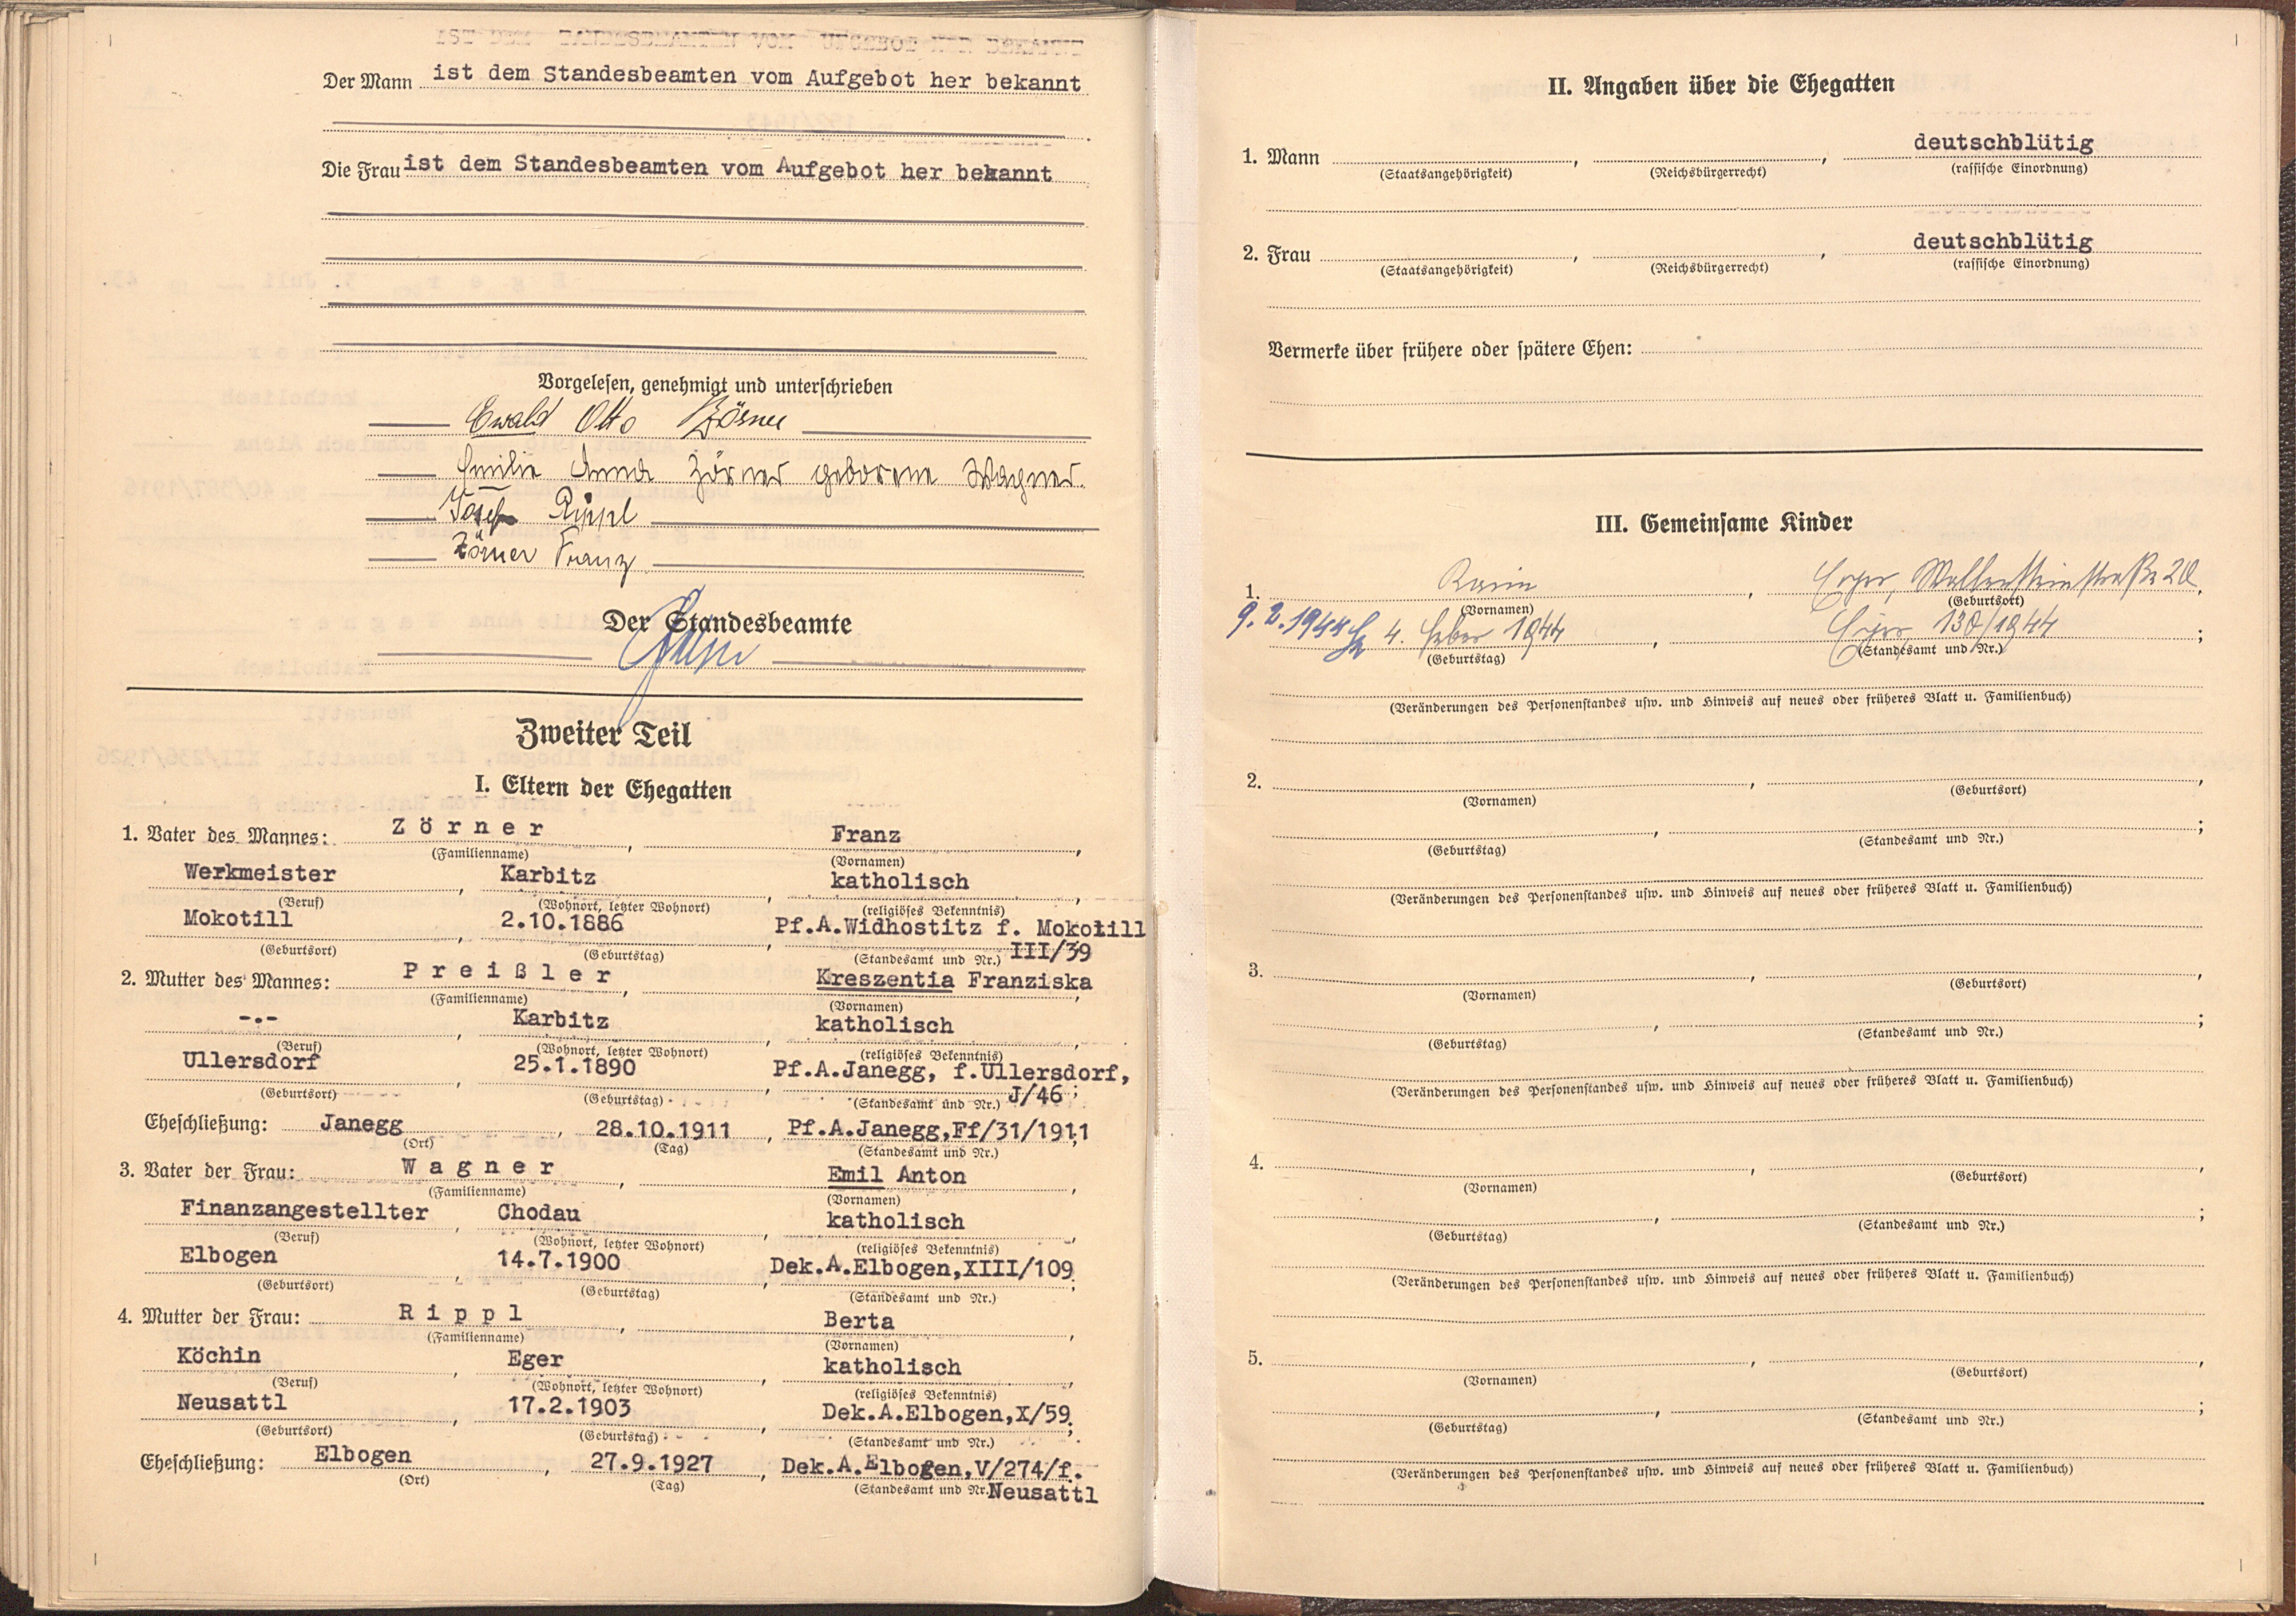 Der Mann ist dem Standesbeamten vom Aufgebot her bekannt
Die Frau ist dem Standesbeamten vom Aufgebot her bekannt
Vorgelesen, genehmigt und unterschrieben
Ewald Otto Zörner
Emilie Anna Zörner geborene Wagner.
Josef Rippl
Zörner Franz
Der Standesbeamte
Zweiter Teil
I. Eltern der Ehegatten
1. Vater des Mannes: Zörner, Franz,
(Familienname) (Vornamen)
Werkmeister, Karbitz, katholisch,
(Beruf) (Wohnort, letzter Wohnort) (religiöses Bekenntnis)
Mokotill, 2.10.1886 Pf.A.Widhostitz f. Mokotill
(Geburtsort) (Geburtstag) (Standesamt und Nr.) III/39
2. Mutter des Mannes: Preißler, Kreszentia Franziska,
(Familienname) (Vornamen)
-.-, Karbitz, katholisch,
(Beruf) (Wohnort, letzter Wohnort) (religiöses Bekenntnis)
Ullersdorf, 25.1.1890, Pf.A.Janegg, f.Ullersdorf,
(Geburtsort) (Geburtstag) (Standesamt und Nr.) J/46;
Eheschließung: Janegg, 28.10.1911, Pf.A.Janegg,Ff/31/1911;
(Ort) (Tag) (Standesamt und Nr.)
3. Vater der Frau: Wagner, Emil Anton,
(Familienname) (Vornamen)
Finanzangestellter, Chodau, katholisch,
(Beruf) (Wohnort, letzter Wohnort) (religiöses Bekenntnis)
Elbogen, 14.7.1900, Dek.A.Elbogen,XIII/109;
(Geburtsort) (Geburtstag) (Standesamt und Nr.)
4. Mutter der Frau: Rippl, Berta,
(Familienname) (Vornamen)
Köchin, Eger, katholisch,
(Beruf) (Wohnort, letzter Wohnort) (religiöses Bekenntnis)
Neusattl, 17.2.1903, Dek.A.Elbogen,X/59;
(Geburtsort) (Geburtstag) (Standesamt und Nr.)
Eheschließung: Elbogen, 27.9.1927, Dek.A.Elbogen,V/274/f.
(Ort) (Tag) (Standesamt und Nr.) Neusattl
II. Angaben über die Ehegatten
1. Mann , , deutschblütig
(Staatsangehörigkeit) (Reichsbürgerrecht) (rassische Einordnung)
2. Frau , , deutschblütig
(Staatsangehörigkeit) (Reichsbürgerrecht) (rassische Einordnung)
Vermerke über frühere oder spätere Ehen:
III. Gemeinsame Kinder
1. Karin, Eger, Wallensteinstraße 20,
(Vornamen) (Geburtsort)
9.2.1944 4. Feber 1944, Eger, 130/1944;
(Geburtstag) (Standesamt und Nr.)
(Veränderungen des Personenstandes usw. und Hinweis auf neues oder früheres Blatt u. Familienbuch)
2. , ,
(Vornamen) (Geburtsort)
, ;
(Geburtstag) (Standesamt und Nr.)
(Veränderungen des Personenstandes usw. und Hinweis auf neues oder früheres Blatt u. Familienbuch)
3. , ,
(Vornamen) (Geburtsort)
, ;
(Geburtstag) (Standesamt und Nr.)
(Veränderungen des Personenstandes usw. und Hinweis auf neues oder früheres Blatt u. Familienbuch)
4. , ,
(Vornamen) (Geburtsort)
, ;
(Geburtstag) (Standesamt und Nr.)
(Veränderungen des Personenstandes usw. und Hinweis auf neues oder früheres Blatt u. Familienbuch)
5. , ,
(Vornamen) (Geburtsort)
, ;
(Geburtstag) (Standesamt und Nr.)
(Veränderungen des Personenstandes usw. und Hinweis auf neues oder früheres Blatt u. Familienbuch)